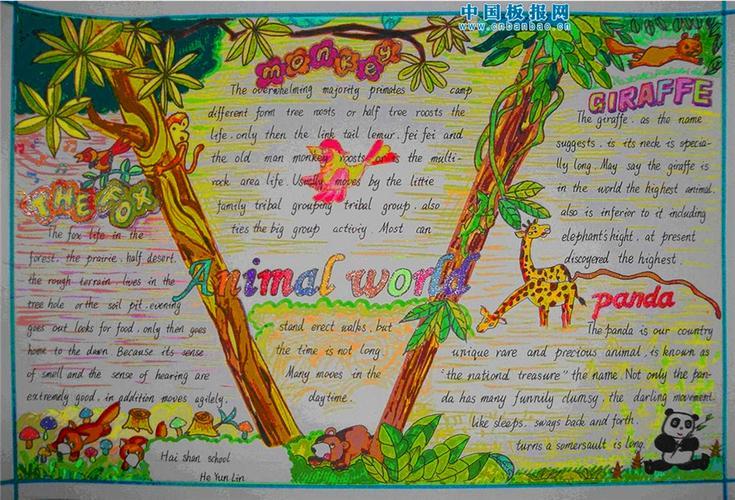 中国板报网
www.cnbanbao.cn
monkey
The overwhelming majority primates camp
different form tree roosts or half tree roosts the
life. only then the link tail lemur. fei fei and
the old man monkey roosts on is the multi-
rock area life. Usually moves by the little
family tribal grouping tribal group. also
ties the big group activity. Most can
stand erect walks. but
the time is not long.
Many moves in the
daytime.
GIRAFFE
The giraffe. as the name
suggests. is its neck is specia-
lly long. May say the giraffe is
in the world the highest animal.
also is inferior to it including
elephant's hight. at present
discoyered the highest.
THE FOX
The fox life in the
forest. the prairie. half desert.
the rough terrain. lives in the
tree hole or the soil pit. evening
goes out looks for food. only then goes
home to the dawn. Because its sense
of smell and the sense of hearing are
extremely good. in addition moves agilely.
Animal world
panda
The panda is our country
unique rare and precious animal. is known as
"the nationd treasure" the name. Not only the pan-
da has many funnily clumsy. the darling movement.
like sleeps. sways back and forth.
turns a somersault is long.
Hai shan school
He Yun Lin